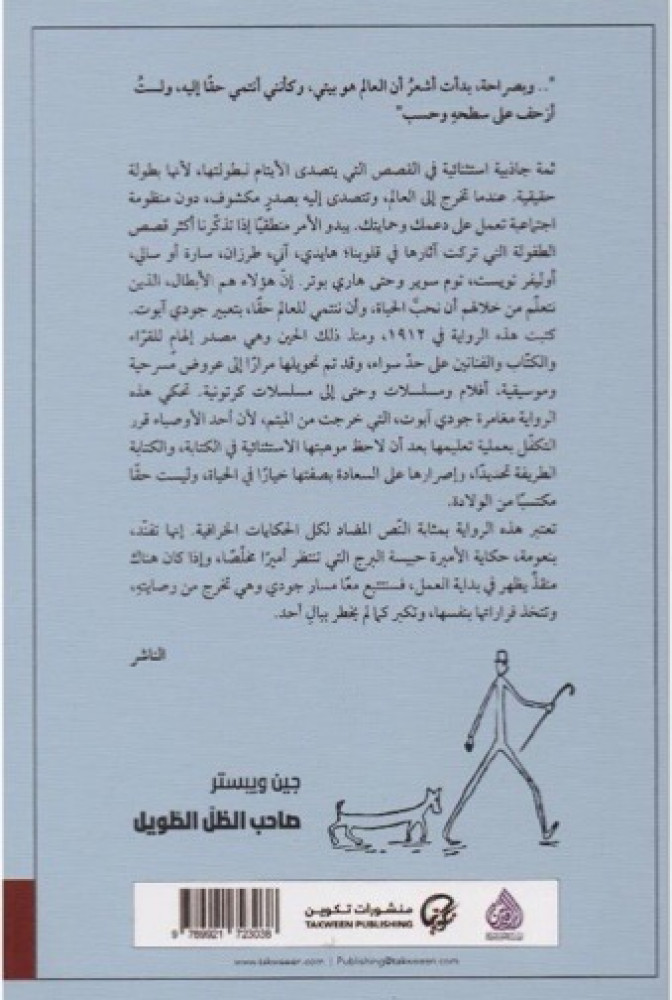 ".. وبصراحة، بدأت أشعرُ أن العالم هو بيتي، وكأنني أنتمي حقًا إليه، ولستُ
أزحف على سطحهِ وحسب"
ثمة جاذبية استثنائية في القصص التي يتصدى الأيتام لبطولتها، لأنها بطولة
حقيقية. عندما تخرج إلى العالم، وتتصدى إليه بصدرٍ مكشوف، دون منظومة
اجتماعية تعمل على دعمك وحمايتك. يبدو الأمر منطقيًا إذا تذكّرنا أكثر قصص
الطفولة التي تركت آثارها في قلوبنا؛ هايدي، آني، طرزان، سارة أو سالي،
أوليفر تويست، توم سوير وحتى هاري بوتر. إنّ هؤلاء هم الأبطال، الذين
نتعلّم من خلالهم أن نحبَّ الحياة، وأن ننتمي للعالم حقًا، بتعبير جودي آبوت.
كتبت هذه الرواية في ١٩١٢، ومنذ ذلك الحين وهي مصدر إلهامٍ للقرّاء
والكتّاب والفنانين على حدّ سواء، وقد تم تحويلها مرارًا إلى عروض مسرحية
وموسيقية، أفلام ومسلسلات وحتى إلى مسلسلات كرتونية. تحكي هذه
الرواية مغامرة جودي آبوت، التي خرجت من الميتم، لأن أحد الأوصياء قرر
التكفّل بعملية تعليمها بعد أن لاحظ موهبتها الاستثنائية في الكتابة، والكتابة
الطريفة تحديدًا، وإصرارها على السعادة بصفتها خيارًا في الحياة، وليست حقًا
مكتسبًا من الولادة.
تعتبر هذه الرواية بمثابة النّص المضاد لكل الحكايات الخرافية. إنها تفنّد،
بنعومة، حكاية الأميرة حبيسة البرج التي تنتظر أميرًا مخلّصًا، وإذا كان هناك
منقذٌ يظهر في بداية العمل، فسنتتبع معًا مسار جودي وهي تخرج من وصايته،
وتتخذ قراراتها بنفسها، وتكبر كما لم يخطر ببالِ أحد.
الناشر
جين ويبستر
صاحب الظّلّ الطّويل
منشورات تكوين
TAKWEEN PUBLISHING
9 789921 723038
www.takween.com | Publishing@takween.com